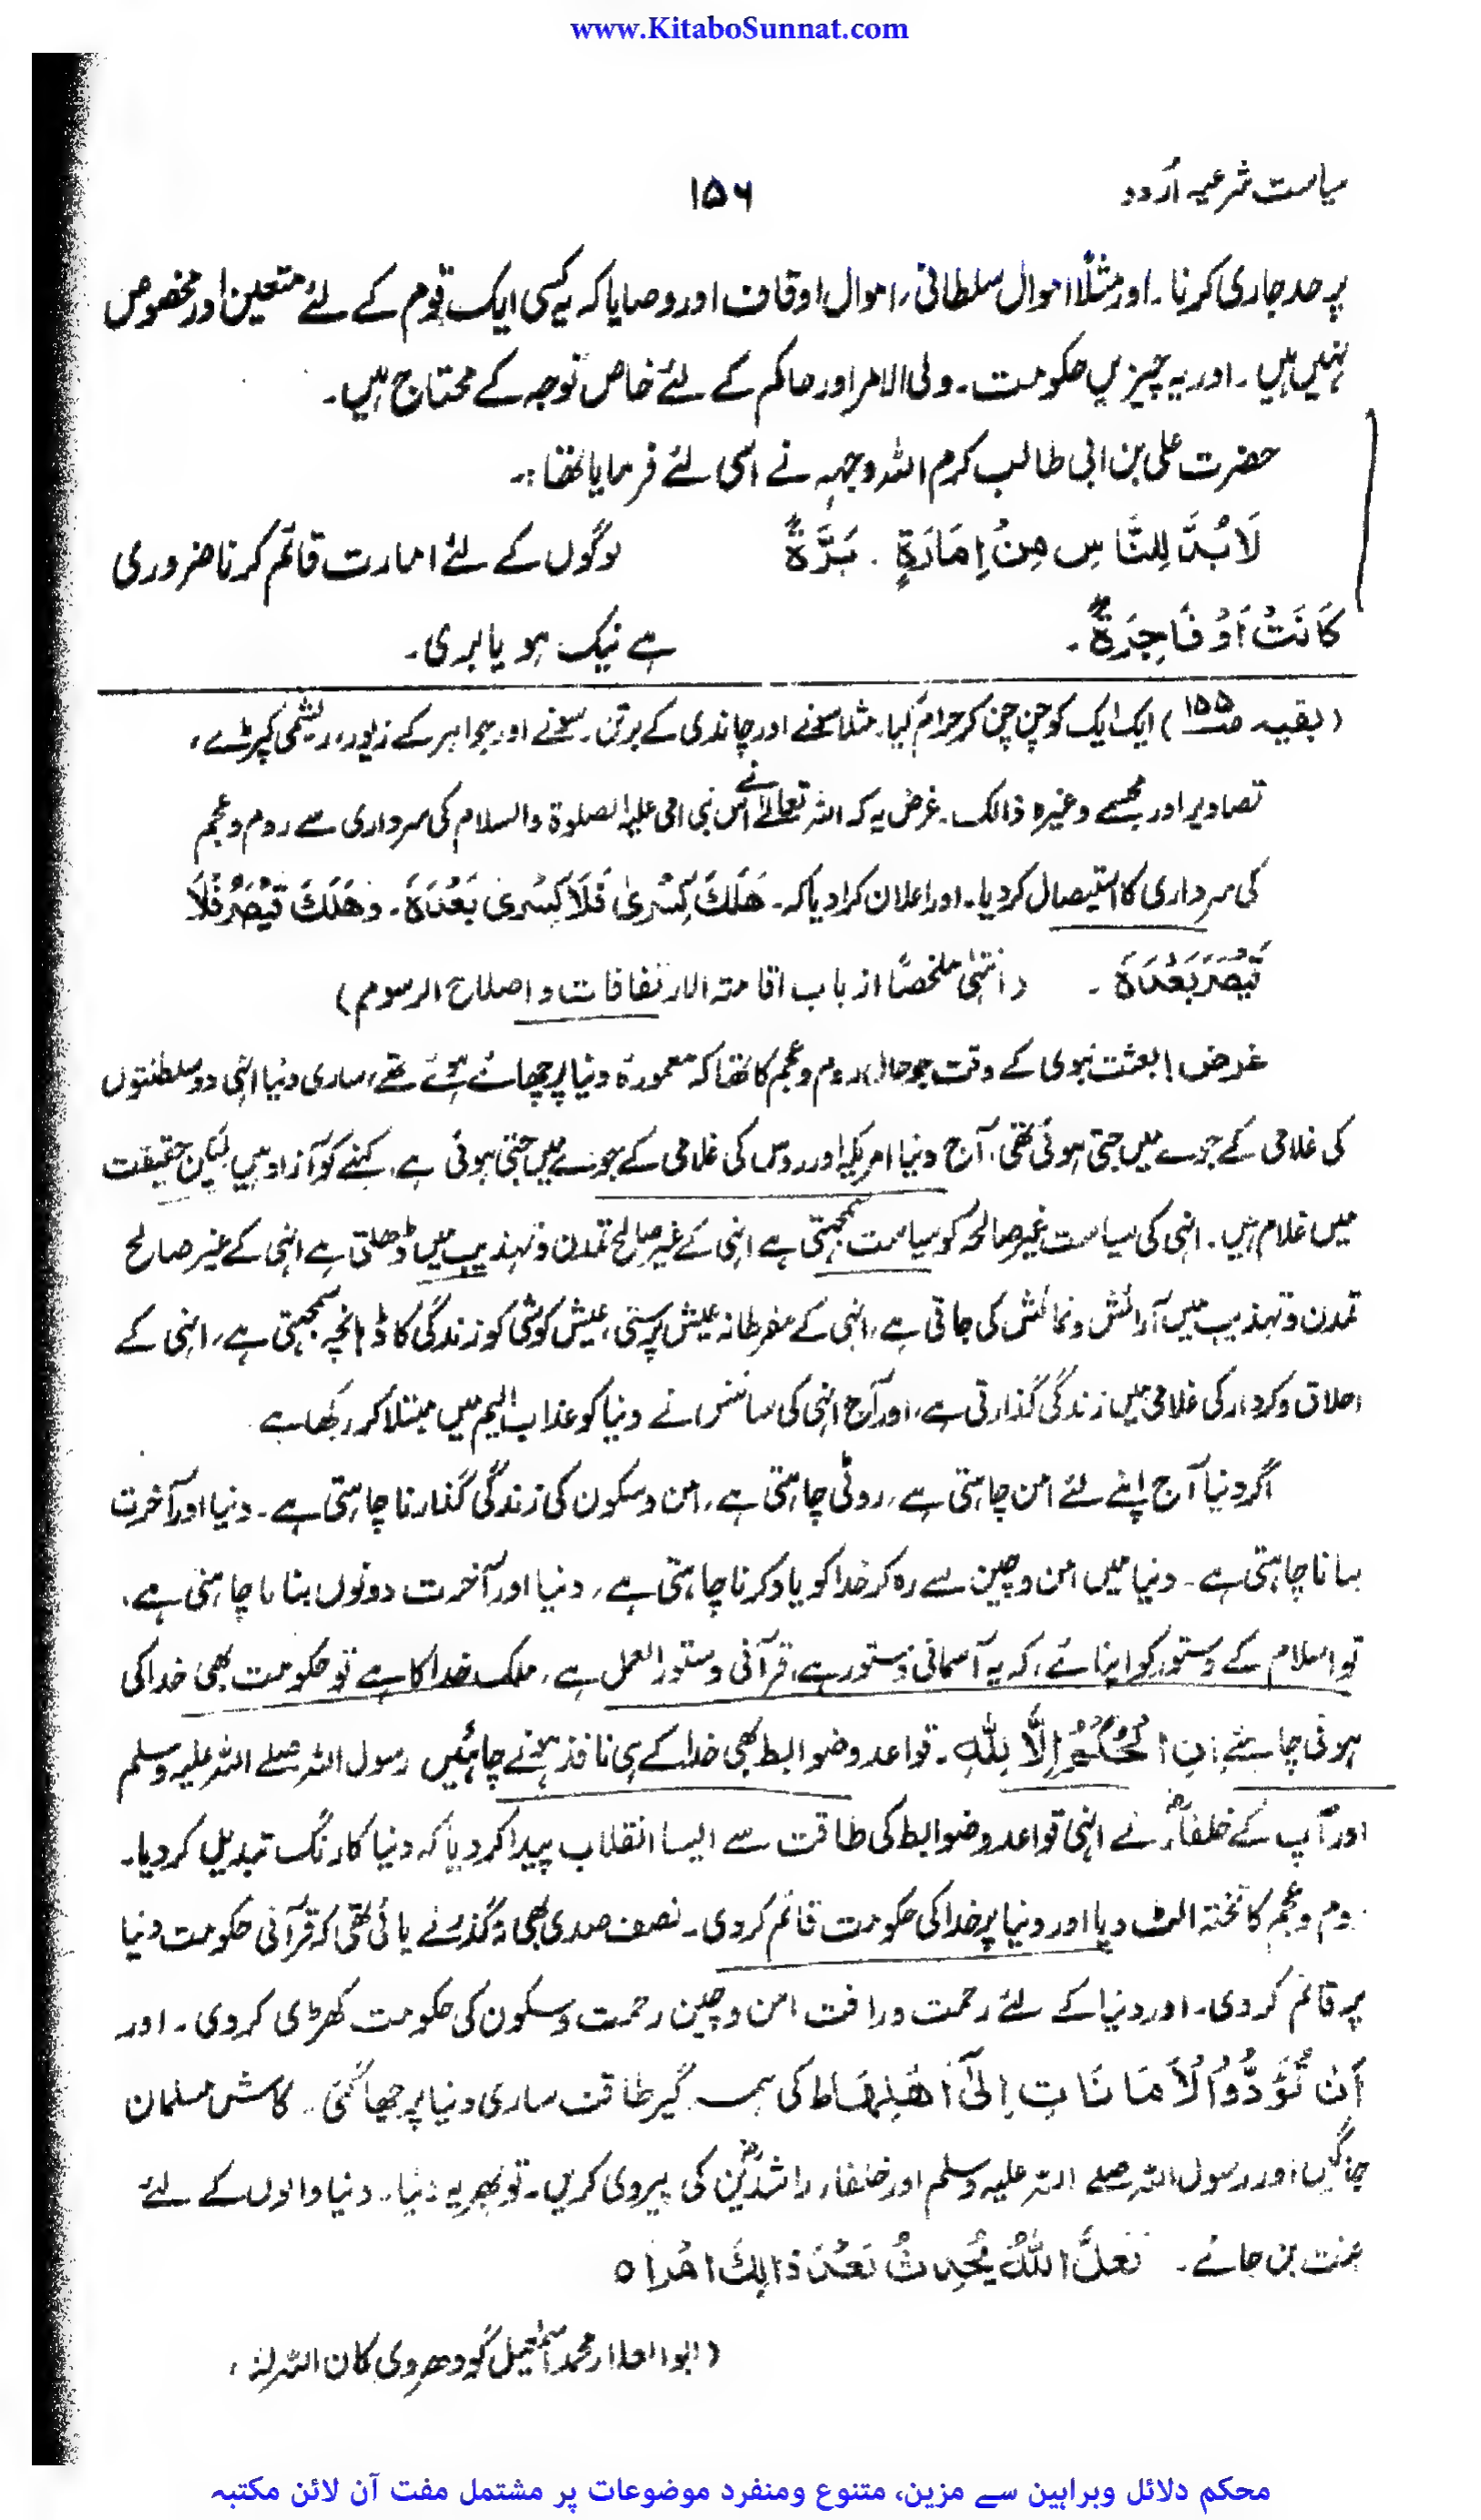 www.KitaboSunnat.com
سیاست شرعیہ اُردو
۱۵۶
پر حد جاری کرنا۔ اور مثلًا اموال سلطانی، اموال اوقاف اور وصایا کہ یہ کسی ایک قوم کے لئے متعین اور مخصوص
نہیں ہیں۔ اور یہ چیزیں حکومت۔ ولی الامر اور حاکم کے لئے خاص توجہ کے محتاج ہیں۔
حضرت علی بن ابی طالب کرم اللہ وجہہ نے اسی لئے فرمایا تھا:۔
لَابُدَّ لِلنَّاسِ مِنْ اِمَارَةٍ۔ بَرَّةً لوگوں کے لئے امارت قائم کرنا ضروری
كَانَتْ اَوْ فَاجِرَةً۔ ہے نیک ہو یا بری۔
(بقیہ صـ۱۵۵) ایک ایک کو چن چن کر حرام کیا۔ مثلا سونے اور چاندی کے برتن۔ سونے اور جواہر کے زیور، ریشمی کپڑے،
تصاویر اور مجسمے وغیرہ ذالک۔ غرض یہ کہ اللہ تعالےٰ نے اس نبی امی علیہ الصلوۃ والسلام کی سرداری سے روم و عجم
کی سرداری کا استیصال کر دیا۔ اور اعلان کرا دیا کہ۔ هَلَكَ كِسْرىٰ فَلَا كِسْرىٰ بَعْدَهٗ۔ وَهَلَكَ قَيْصَرُ فَلَا
قَيْصَرَ بَعْدَهٗ۔ (انتہیٰ ملخصًا از باب اقامتہ الارتفاقات و اصلاح الرسوم)
غرض! بعثت نبوی کے وقت جو حال روم و عجم کا تھا کہ معمورۂ دنیا پر چھائے ہوئے تھے، ساری دنیا انہی دو سلطنتوں
کی غلامی کے جوے میں جتی ہوئی تھی، آج دنیا امریکہ اور روس کی غلامی کے جوے میں جتی ہوئی ہے، کہنے کو آزاد ہیں لیکن حقیقت
میں غلام ہیں۔ انہی کی سیاست غیر صالحہ کو سیاست سمجہتی ہے انہی کے غیر صالح تمدن و تہذیب میں ڈھلتی ہے انہی کے غیر صالح
تمدن و تہذیب میں آرائش و نمائش کی جاتی ہے، انہی کے مفرطانہ عیش پرستی، عیش کوشی کو زندگی کا ڈھانچہ سمجہتی ہے، انہی کے
اخلاق و کردار کی غلامی میں زندگی گذارتی ہے، اور آج انہی کی سائنس نے دنیا کو عذاب الیم میں مبتلا کر رکھا ہے
اگر دنیا آج اپنے لئے امن چاہتی ہے، روٹی چاہتی ہے، امن و سکون کی زندگی گذارنا چاہتی ہے۔ دنیا اور آخرت
بنانا چاہتی ہے۔ دنیا میں امن و چین سے رہ کر خدا کو یاد کرنا چاہتی ہے، دنیا اور آخرت دونوں بنانا چاہتی ہے،
تو اسلام کے دستور کو اپنائے، کہ یہ آسمانی دستور ہے، قرآنی دستور العمل ہے، ملک خدا کا ہے تو حکومت بھی خدا کی
ہونی چاہئے اِنِ الْحُكْمُ اِلَّا لِلّٰهِ۔ قواعد و ضوابط بھی خدا کے ہی نافذ ہونے چاہئیں رسول اللہ صلے اللہ علیہ وسلم
اور آپ کے خلفاءؓ نے انہی قواعد و ضوابط کی طاقت سے ایسا انقلاب پیدا کر دیا کہ دنیا کا رنگ تبدیل کر دیا۔
روم و عجم کا تختہ الٹ دیا اور دنیا پر خدا کی حکومت قائم کر دی۔ نصف صدی بھی نہ گذرنے پائی تھی کہ قرآنی حکومت دنیا
پر قائم کر دی۔ اور دنیا کے لئے رحمت و رافت امن و چین رحمت و سکون کی حکومت کھڑی کر دی۔ اور
اَنْ تُؤَدُّوا الْاَمَانَاتِ اِلىٰٓ اَهْلِهَا ط کی ہمہ گیر طاقت ساری دنیا پر چھا گئی۔ کاش مسلمان
جاگیں اور رسول اللہ صلے اللہ علیہ وسلم اور خلفاء راشدینؓ کی پیروی کریں۔ تو پھر یہ دنیا۔ دنیا والوں کے لئے
جنت بن جائے۔ لَعَلَّ اللهَ يُحْدِثُ بَعْدَ ذَالِكَ اَمْرًا ه
(ابو العلاء محمد اسمٰعیل گودھروی کان اللہ لہٗ،
محکم دلائل وبراہین سے مزین، متنوع ومنفرد موضوعات پر مشتمل مفت آن لائن مکتبہ